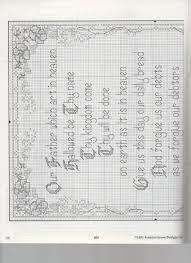 Our Father which art in heaven
Hallowed be Thy name
Thy kingdom come
Thy will be done
on earth as it is in heaven
Give us this day our daily bread
And forgive us our debts
as we forgive our debtors